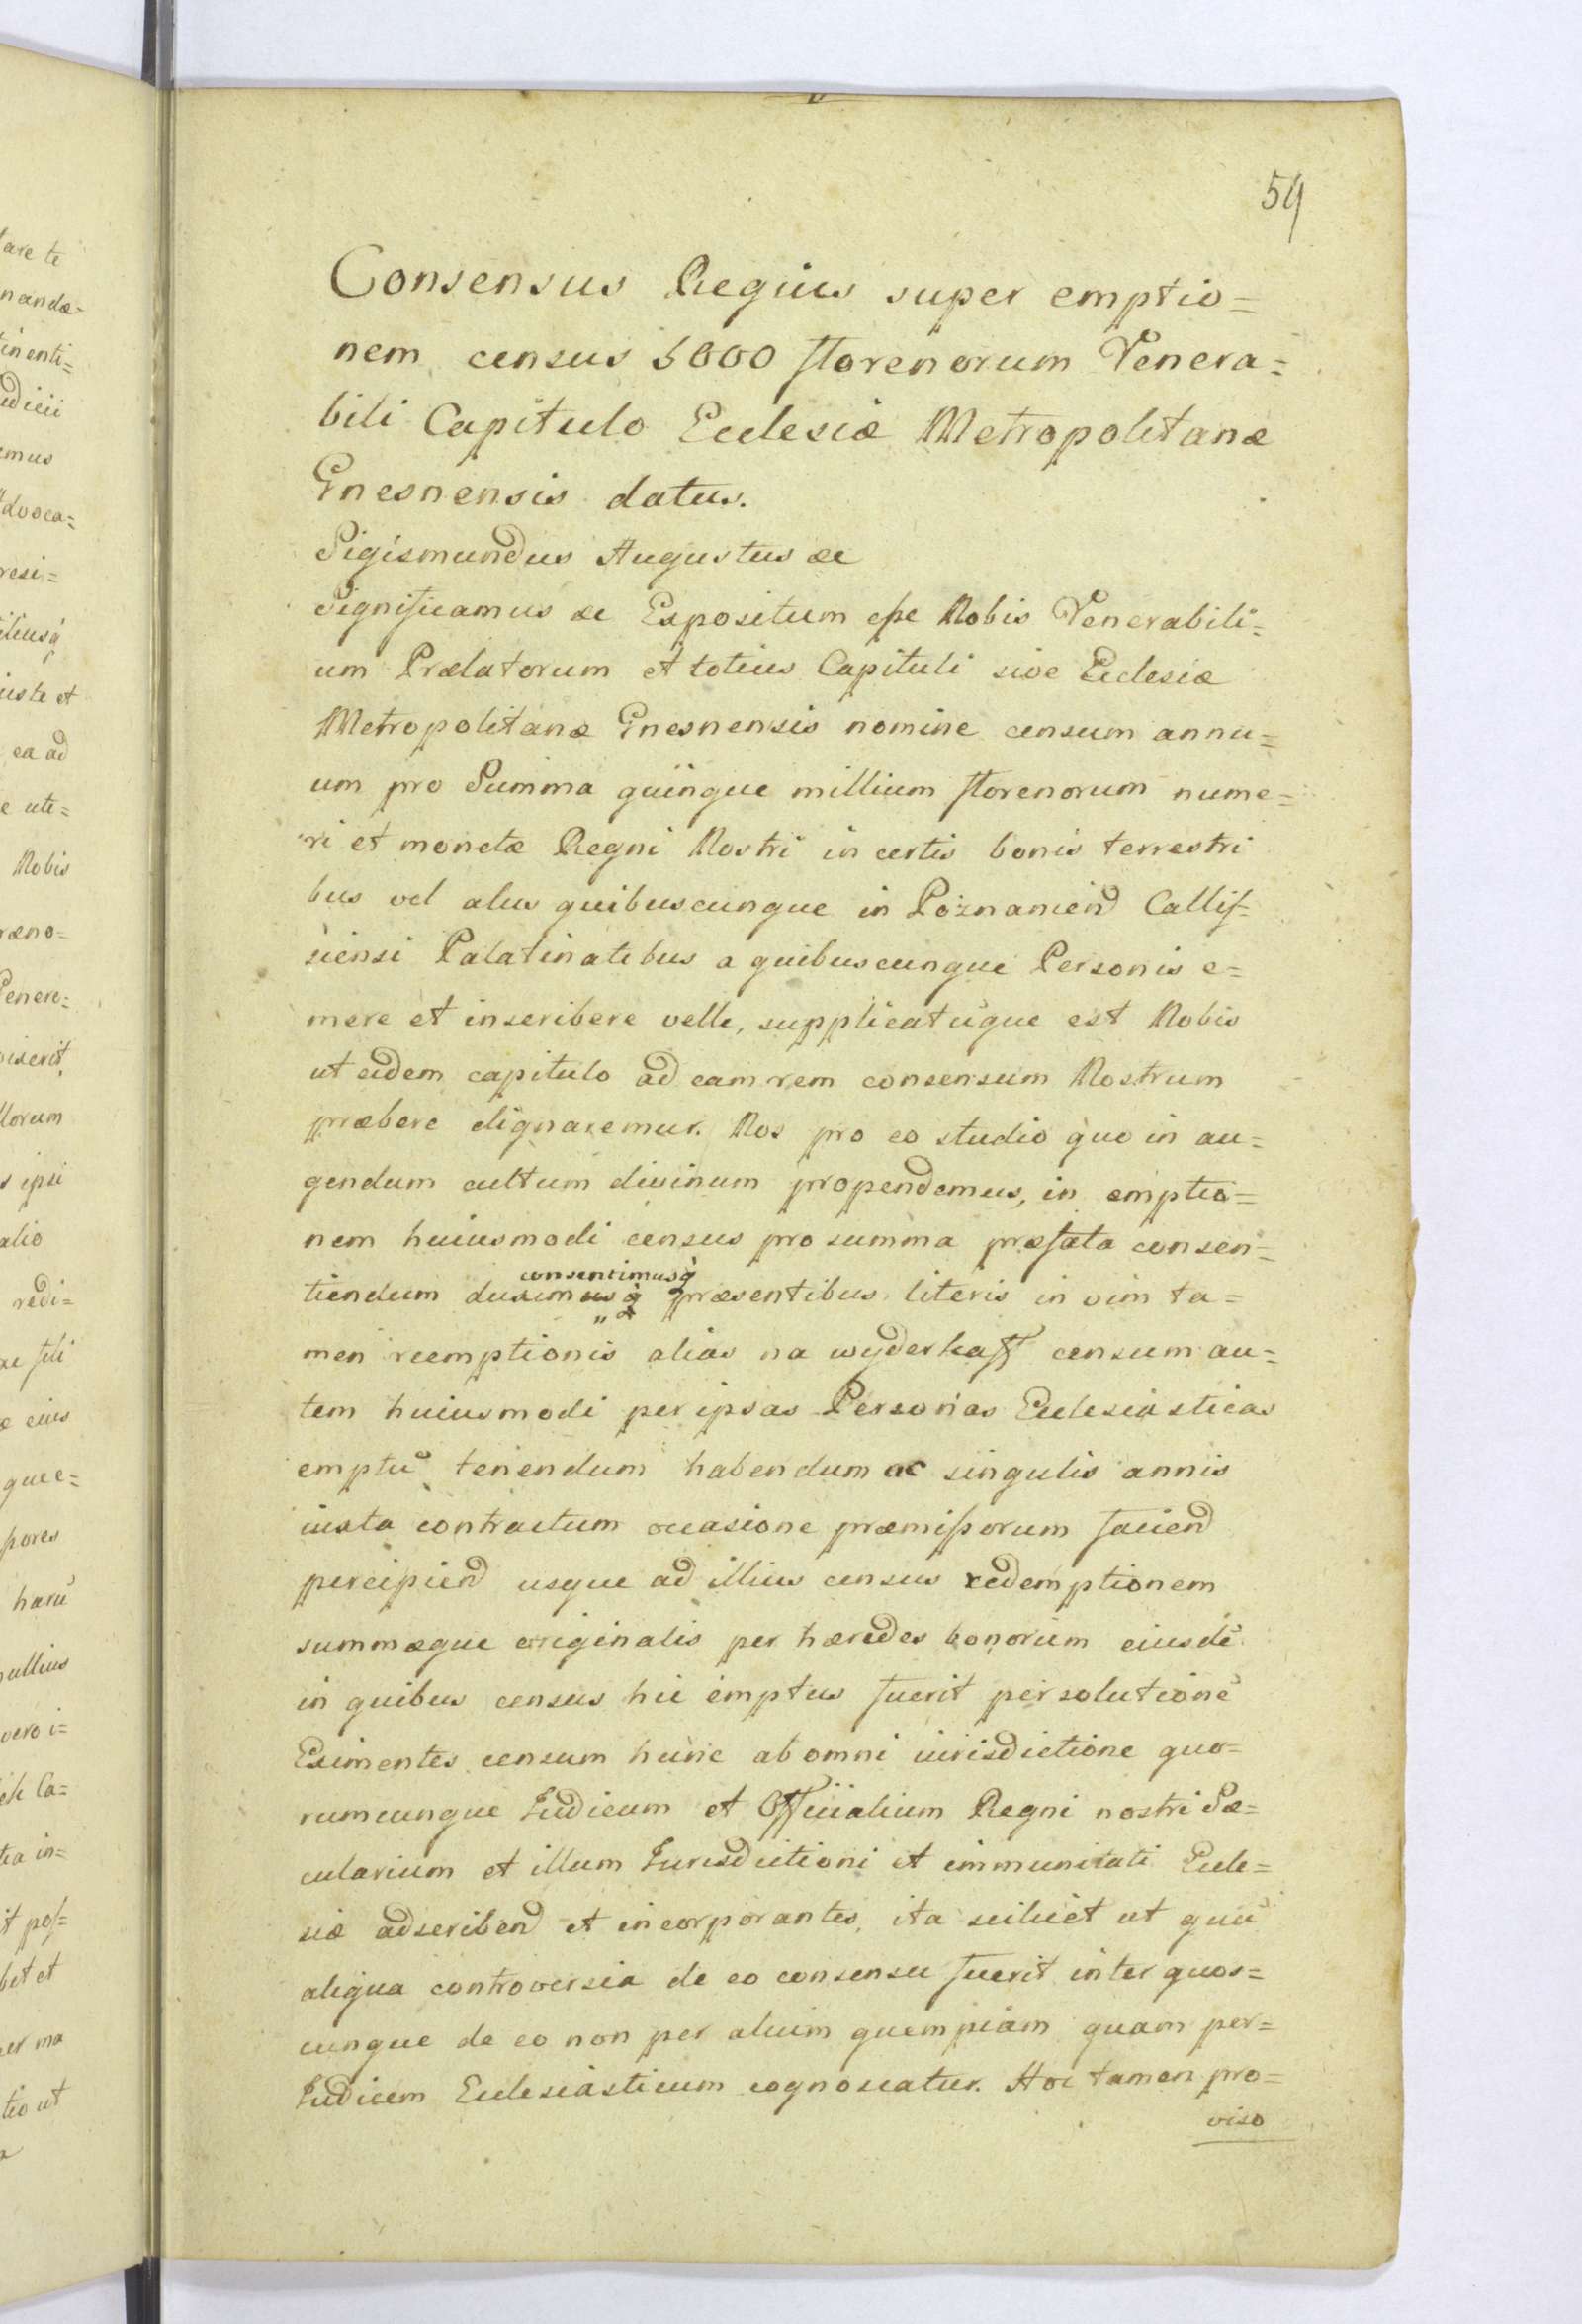 59
Consensus Regius super emptio=
nem census 5000 florenorum Venera=
bili Capitulo Ecclesiæ Metropolitanæ
Gnesnensis datus.
Sigismundus Augustus &c
Significamus &c Expositum eße Nobis Venerabili=
um Prælatorum et totius Capituli sive Ecclesiæ
Metropolitanæ Gnesnensis nomine censum annu=
um pro Summa quinque millium florenorum nume=
ri et monetæ Regni Nostri in certis bonis terrestri
bus vel alus quibuscunque in Poznanien̄d Callis=
siensi Palatinatibus a quibuscunque Personis e=
mere et inscribere velle, supplicatuque est Nobis
ut eidem capitulo ad eam rem consensum Nostrum
præbere dignaremur. Nos pro eo studio quo in au=
gendum cultum divinum propendemus, in emptio=
nem huiusmodi census pro summa præfata consen=
consentimusq̀
tiendum duximus q̀ præsentibus literis in vim ta=
men reemptionis alias na wyderkaff censum au=
tem huiusmodi per ipsas Personas Ecclesiasticas
emptū tenendum habendum ac singulis annis
iuxta contractum occasione præmißorum faciend
percipiend usque ad illius census redemptionem
summæque originalis per hæredes bonorum eiusdē
in quibus census hic emptus fuerit persolutionē
Eximentes censum hunc ab omni iurisdictione quo=
rumcunque Iudicum et Officialium Regni nostri Sæ=
cularium et illum Iurisdictioni et immunitati Eccle=
siæ adscribend et incorporantes, ita scilicet ut quū
aliqua controversia de eo consensu fuerit inter quos=
cunque de eo non per alium quempiam quam per=
Iudicem Ecclesiasticum cognoscatur. Hoc tamen pro=
viso